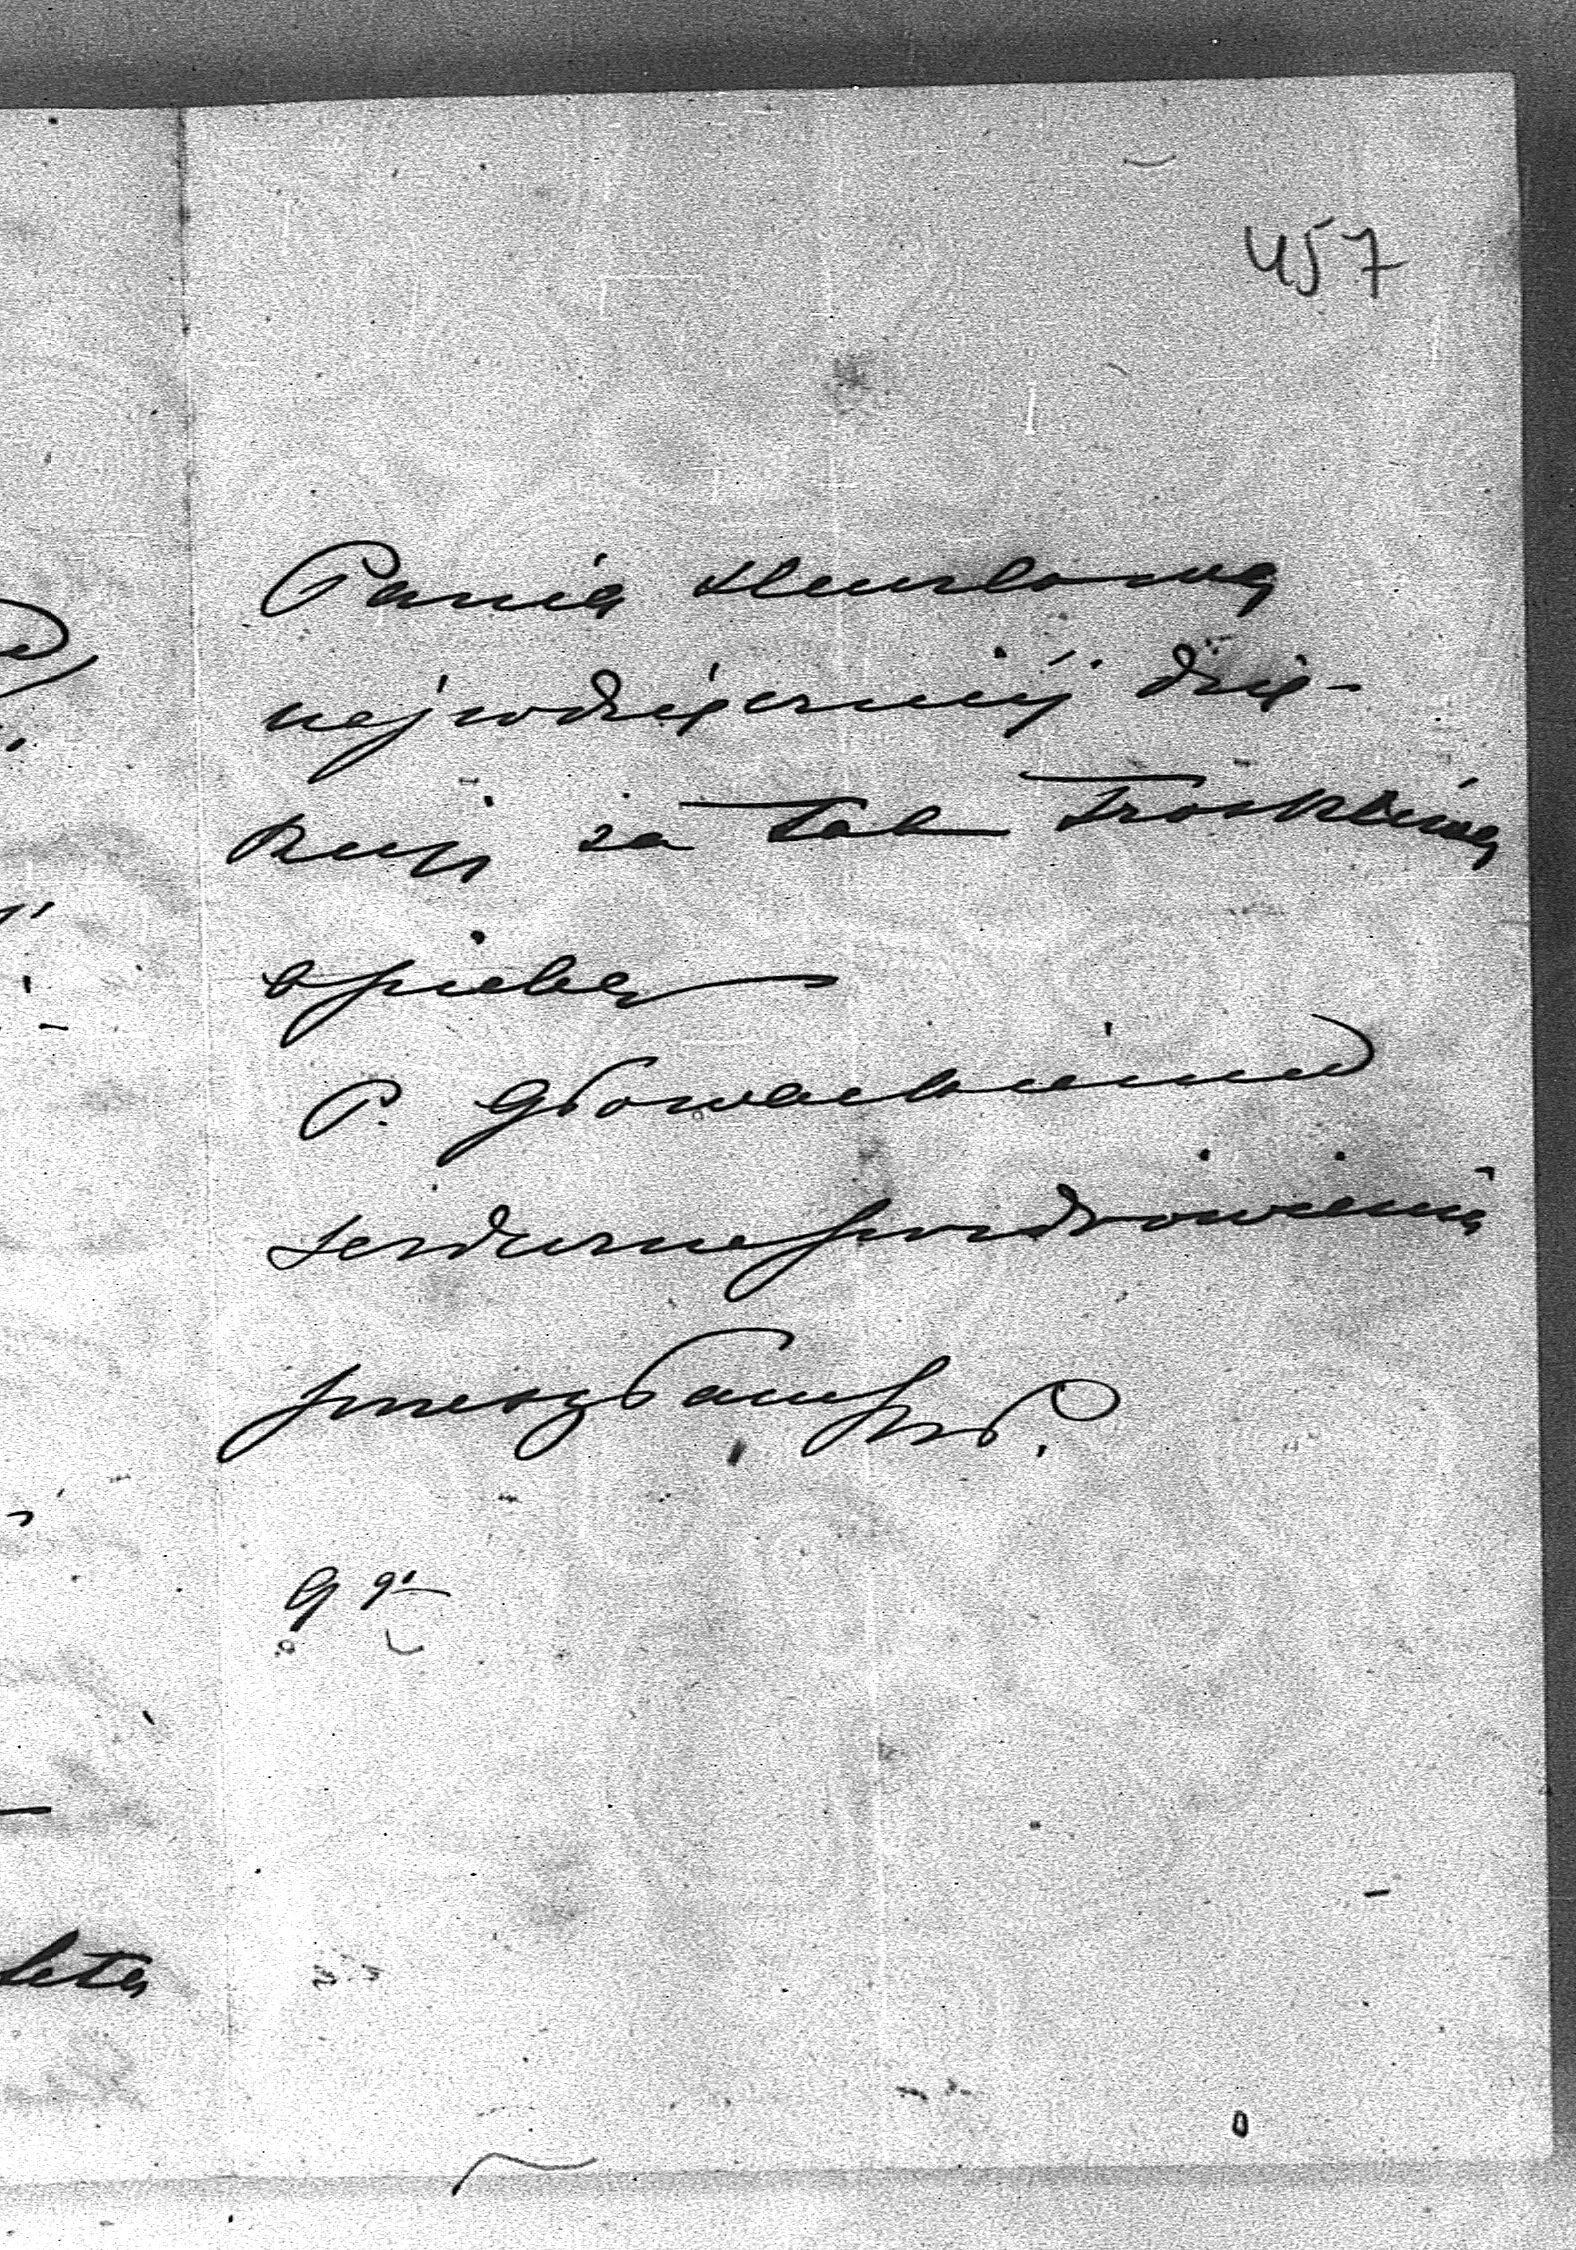 457
Panią
najwdzięczniéj dzię-
kuję za tak troskliwą
opiekę
P. Głowackiemu
serdeczne pozdrowienia
przesyłam
letą